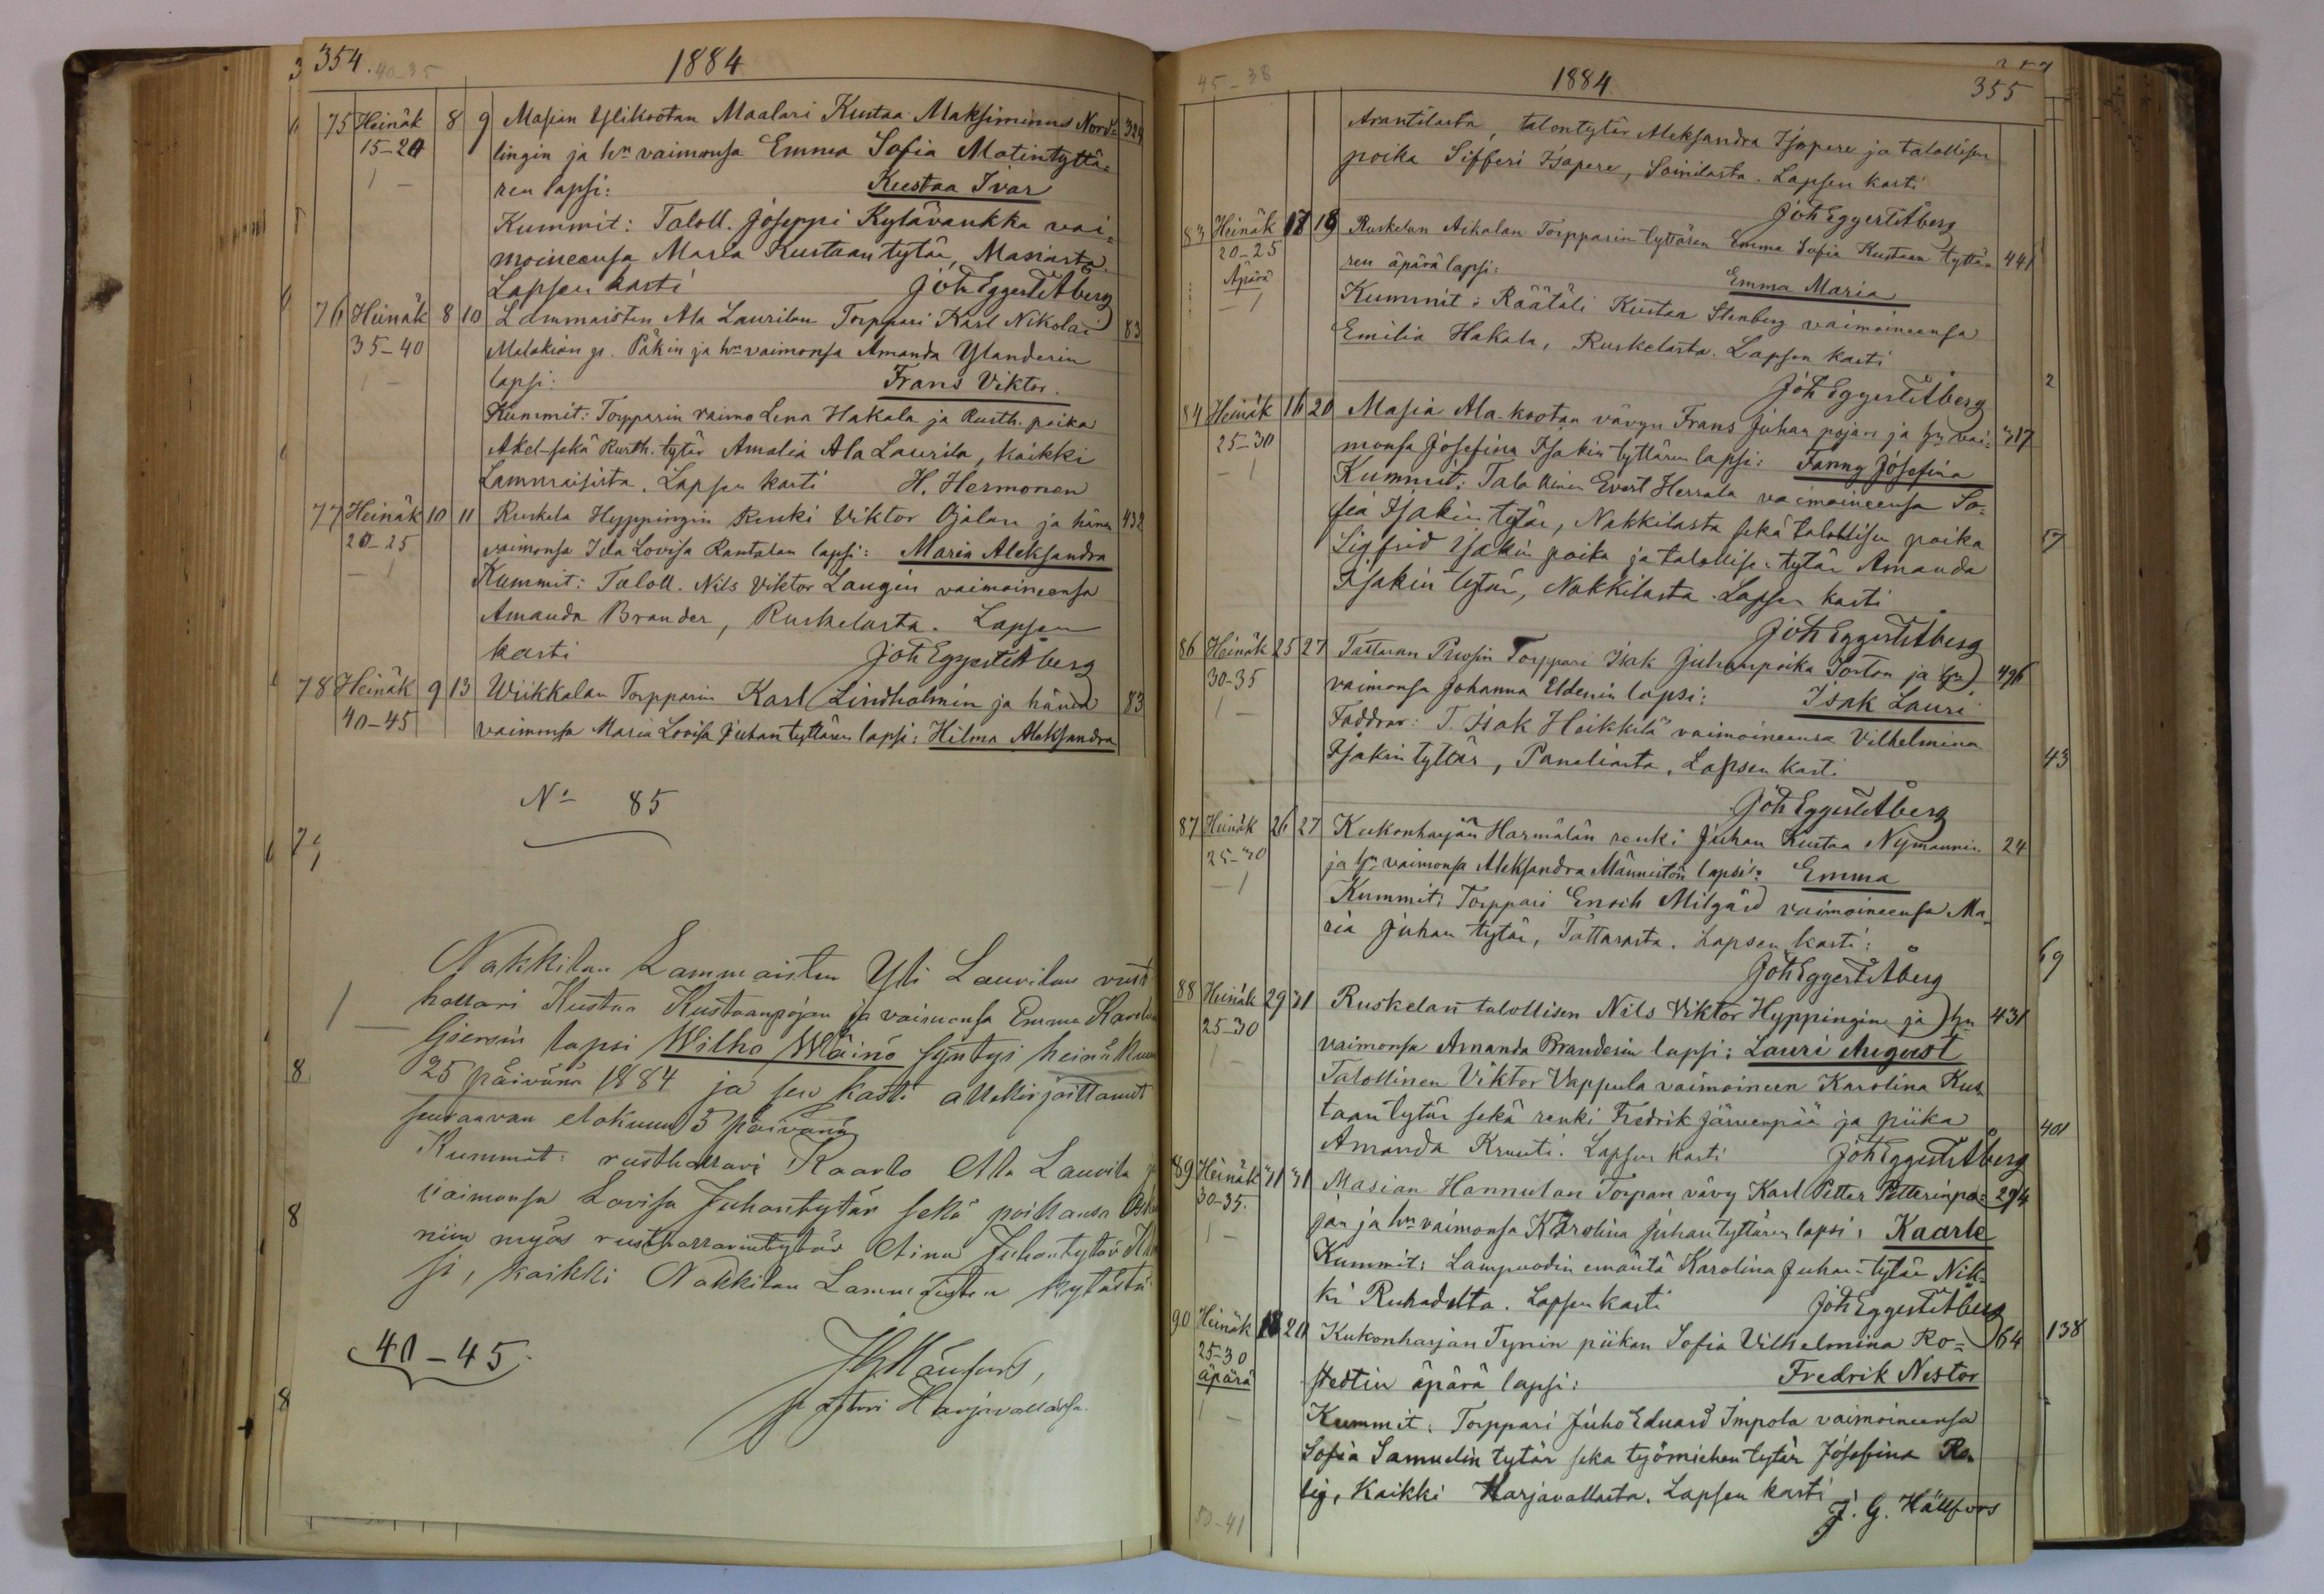 354. 40-35
1884
75 Heinäk 8 9 Masian Ylikootan Maalari Kustaa Maksiminus Nord= 324
15-20 lingin ja hn vaimonsa Emma Sofia Matintyttä=
1 - ren lapsi: Kustaa Ivar
Kummit: Taloll. Joseppi Kylävaukka vai=
moineensa Maria Kustaan tytär, Masiasta.
Lapsen kasti Joh Eggert Et Åberg
76 Heinäk 8 10 Lammaisten Ala Laurilan Torppari Karl Nikolai 83
35-40 Malakian p. Päkin ja hn vaimonsa Amanda Ylanderin
1 - lapsi: Frans Viktor.
Kummit: Torpparin vaimo Lena Hakala ja Rusth. poika
Akel sekä Rusth. tytär Amalia Ala Laurila, kaikki
Lammaisista. Lapsen kasti H. Hermonen
77 Heinäk 10 11 Ruskela Hyppingin Renki Viktor Ojalan ja hänen 432
20-25 vaimonsa Ida Lovisa Rantalan lapsi: Maria Aleksandra
- 1 Kummit: Taloll. Nils Viktor Laugin vaimoineensa
Amanda Brander, Ruskelasta. Lapsen
kasti Joh Eggert Et Åberg
78 Heinäk 9 13 Wiikkalan Torpparin Karl Lindholmin ja hänen 83
40-45 vaimonsa Maria Lovisa Juhan tyttären lapsi: Hilma Aleksandra
No 85
Nakkilan Lammaisten Yli Laurilan rust
hollari Kustaa Kustaanpojan ja vaimonsa Emma
lapsi Wilho Wäinö syntyi heinäkuun
25 päivänä 1884 ja sen kasti allekirjoittanut
seuraavan elokuun 3 päivänä
Kummit: rusthollari Kaarlo Ala Laurila
vaimonsa Lovisa Juhantytär sekä poikansa
niin myös rusthollarintytär Aina Juhantytär
si, kaikki Nakkilan Lammaisten kylästä
40-45
Harjavallassa.
45-38
1884
355
Arantilasta, talontytär Aleksandra Isopere ja talollisen
poika Sifferi Isopere, Soinilasta. Lapsen kasti
Joh Eggert Et Åberg
83 Heinäk 17 19 Ruskelan Askalan Torpparin tyttären Emma Sofia Kustaan tyttä= 441
20-25 ren äpärä lapsi: Emma Maria
Äpärä Kummit: Räätäli Kustaa Stenberg vaimoineensa
- 1 Emilia Hakala, Ruskelasta. Lapsen kasti
Joh Eggert Et Åberg
84 Heinäk 16 20 Masia Ala-kootan vävyn Frans Juhan pojan ja hn vai= 317
25-30 monsa Josefina Isakin tyttären lapsi: Fanny Josefina
- 1 Kummit: Talollinen Evert Herrala vaimoineensa So=
fia Isakin tytär, Nakkilasta sekä talollisen poika
Sigfrid Isakin poika ja talollis. tytär Amanda
Isakin tytär, Nakkilasta. Lapsen kasti
Joh Eggert Et Åberg
86 Heinäk 25 27 Tattaran Prusin Torppari Isak Juhanpoika Torton ja hn 496
30-35 vaimonsa Johanna Eldenin lapsi: Isak Lauri
1 - Faddrar: T. Isak Heikkilä vaimoineensa Vilhelmina
Isakin tyttär, Paneliasta. Lapsen kasti
Joh Eggert Et Åberg
87 Heinäk 26 27 Kukonharjan Harmälän renki Juhan Kustaa Nymannin 24
25-30 ja hn vaimonsa Aleksandra Männistön lapsi: Emma
- 1 Kummit: Torppari Enoch Milgård vaimoineensa Ma=
ria Juhan tytär, Tattarasta. Lapsen kasti:
Joh Eggert Et Åberg
88 Heinäk 29 31 Ruskelan talollisen Nils Viktor Hyppingin ja hn 431
25-30 vaimonsa Amanda Branderin lapsi: Lauri August
1 - Talollinen Viktor Vappula vaimoineen Karolina Kus
taan tytär sekä renki Fredrik Järvenpää ja piika
Amanda Kruuti. Lapsen kasti Joh Eggert Et Åberg
89 Heinäk 31 31 Masian Hannulan Torpan vävy Karl Petter Petterinpo= 294
30-35. jan ja hn vaimonsa Karolina Juhan tyttären lapsi: Kaarle
1 - Kummit: Lampuodin emäntä Karolina Juhan-tytär Nik=
ki Ruhadelta. Lapsen kasti Joh Eggert Et Åberg
90 Heinäk 18 20 Kukonharjan Tynin piikan Sofia Vilhelmina Ro= 64
25-30 stedtin äpärä lapsi: Fredrik Nestor
äpärä
1 - Kummit: Torppari Juho Eduard Impola vaimoineensa
Sofia Samuelin tytär seka työmiehen tytär Josefina Ro
lig, Kaikki Harjavallasta. Lapsen kasti
J. G. Hällfors
50-41
2
57
43
69
401
138